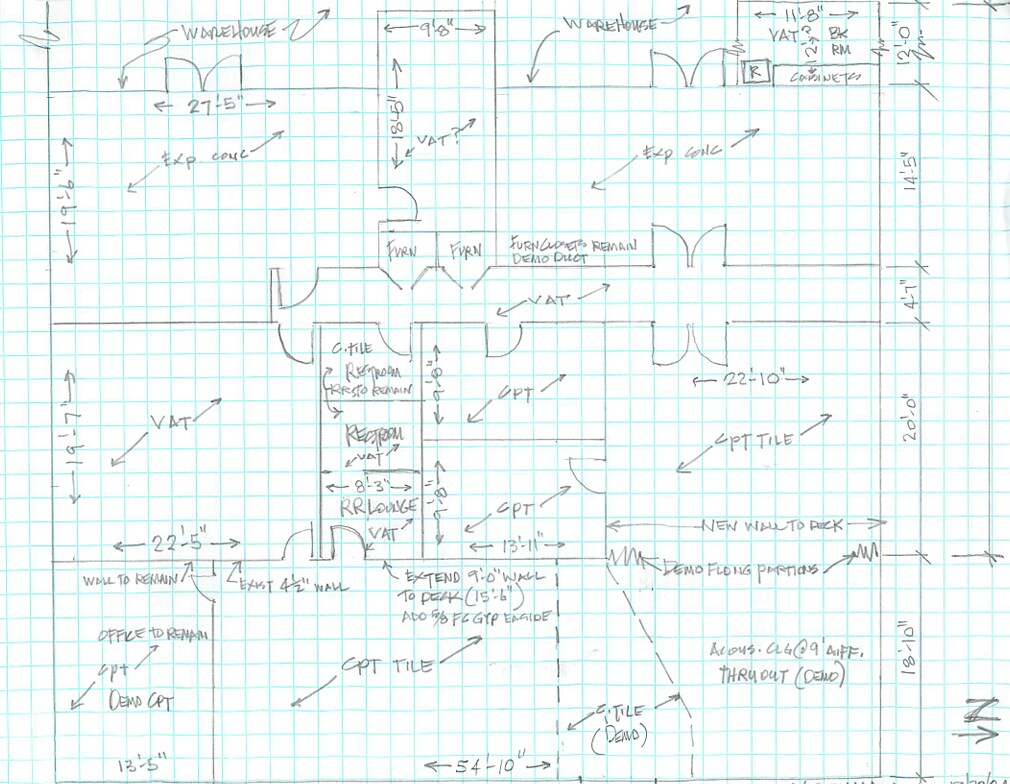 WAREHOUSE
9'-8"
WAREHOUSE
11'-8"
VAT?
12'
BK
RM
12'-0"
R
CABINETS
27'-5"
18'-5"
VAT?
EXP. CONC
EXP CONC
19'-6"
14'-5"
FURN
FURN
FURN CLOSETS REMAIN
DEMO DUCT
VAT
4'-7"
C.TILE
RESTROOM
RR'S TO REMAIN
9'-8"
CPT
22'-10"
VAT
19'-7"
RESTROOM
VAT
CPT TILE
20'-0"
8'-3"
RR LOUNGE
VAT
9'-8"
CPT
13'-11"
NEW WALL TO DECK
22'-5"
WALL TO REMAIN
EXIST 4½" WALL
EXTEND 9'-0" WALL
TO DECK (15'-6")
ADD 5/8 FC GYP EA SIDE
OFFICE TO REMAIN
CPT
DEMO CPT
CPT TILE
ACOUS. CLG @ 9' A.FF.
THRUOUT (DEMO)
18'-10"
C.TILE
(DEMO)
N
13'-5"
54'-10"